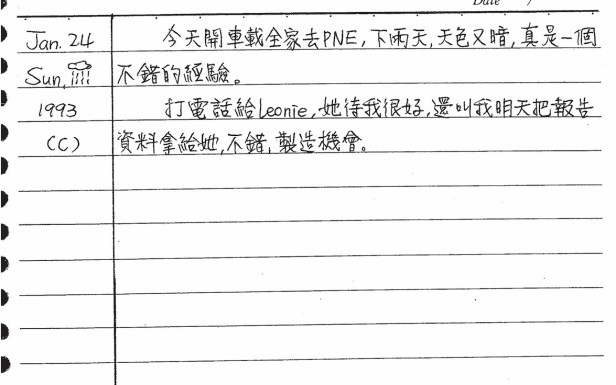 Date /
Jan. 24 今天開車載全家去PNE,下雨天,天色又暗,真是一個
Sun. 不錯的經驗。
1993 打電話給Leonie,她待我很好,還叫我明天把報告
(C) 資料拿給她,不錯,製造機會。